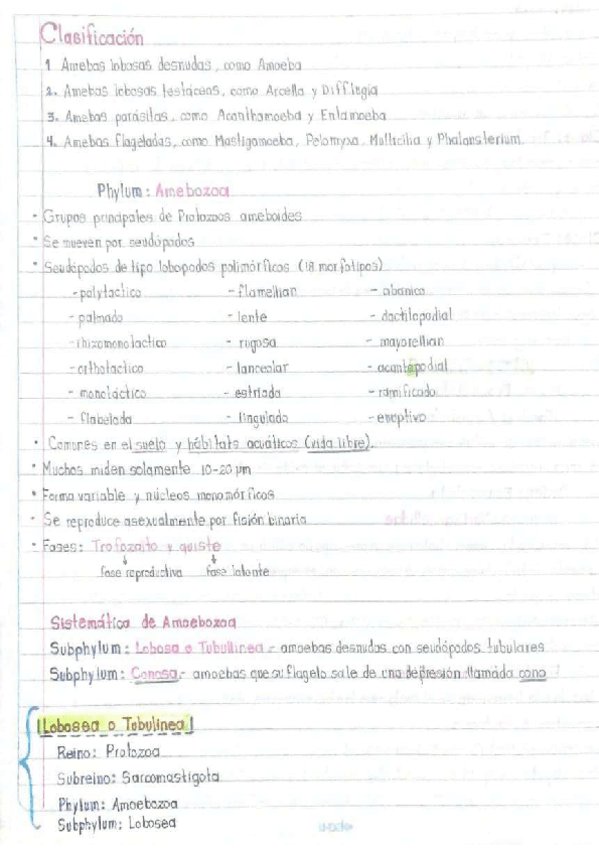 Clasificación
1 Amebas lobosas desnudas, como Amoeba
2. Amebas lobosas testáceas, como Arcella y Difflugia
3. Amebas parásitas, como Acanthamoeba y Entamoeba
4. Amebas flageladas, como Mastigamoeba, Pelomyxa, Multicilia y Phalansterium.
Phylum: Amebozoa
· Grupos principales de Protozoos ameboides
· Se mueven por seudópodos
· Seudópodos de tipo lobopodos polimórficos (18 morfotipos)
- polytactico - flamellian - abanico
- palmado - lente - dactilopodial
- rhizomonotactico - rugosa - mayorellian
- orthotactico - lanceolar - acantopodial
- monotáctico - estriada - ramificado
- flabelada - lingulada - eruptivo
· Comunes en el suelo y hábitats acuáticos (vida libre).
· Muchos miden solamente 10-20 µm
· Forma variable y núcleos monomórficos
· Se reproduce asexualmente por fisión binaria
· Fases: Trofozoito y quiste
↓ ↓
fase reproductiva fase latente
Sistemática de Amoebozoa
Subphylum: Lobosa o Tubulinea - amoebas desnudas con seudópodos tubulares
Subphylum: Conosa - amoebas que su flagelo sale de una depresión llamada cono
Lobosea o Tubulinea
Reino: Protozoa
Subreino: Sarcomastigota
Phylum: Amoebozoa
Subphylum: Lobosea